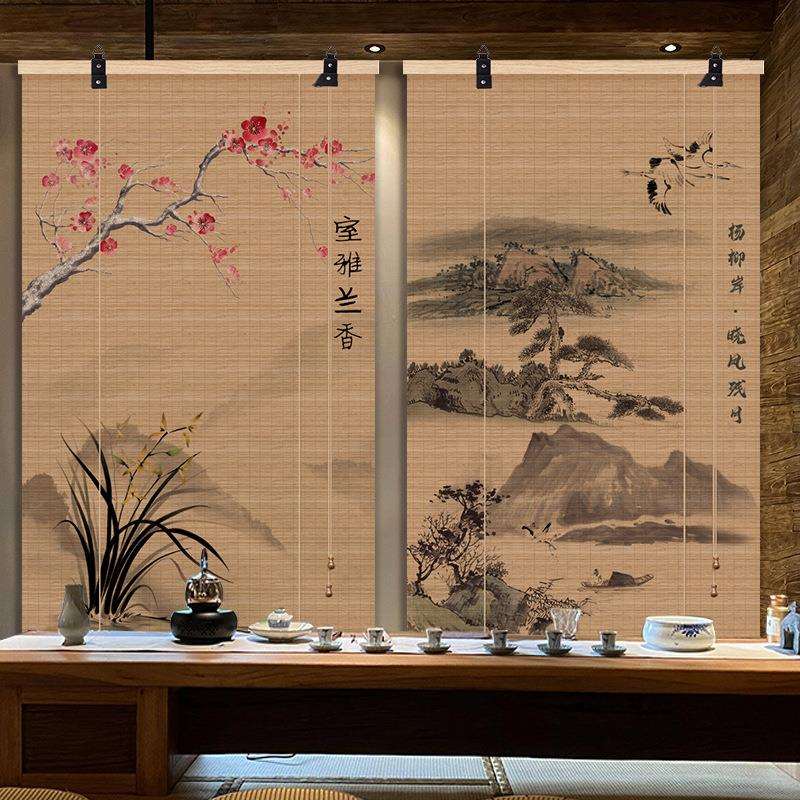 室雅兰香
杨柳岸·晓风残月